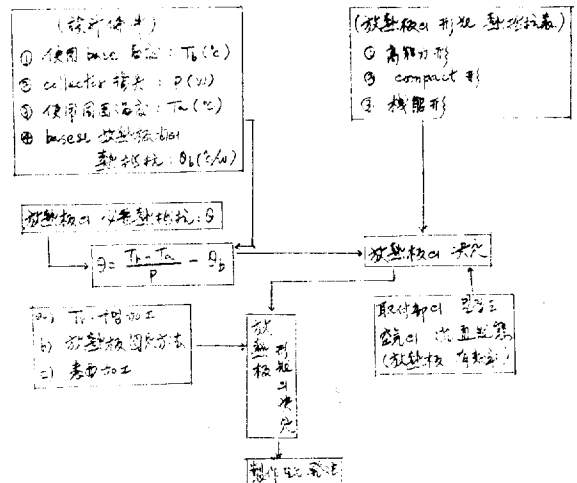 (設計條件)
① 使用 base 温度 : Tb (℃)
② collector 損失 : P (W)
③ 使用周圍温度 : Ta (℃)
④ base와 放熱板
熱抵抗 : θb (℃/W)
(放熱板의 形狀 熱抵抗表)
① 高能力形
② compact 形
③ 機能形
放熱板의 必要熱抵抗 : θ
θ = (Tb - Ta) / P - θb
放熱板의 決定
a) 加工
b) 放熱板固定方法
c) 表面加工
放熱板
形狀의 決定
取付部의
空氣의
(放熱板 有効率)
製作 發注